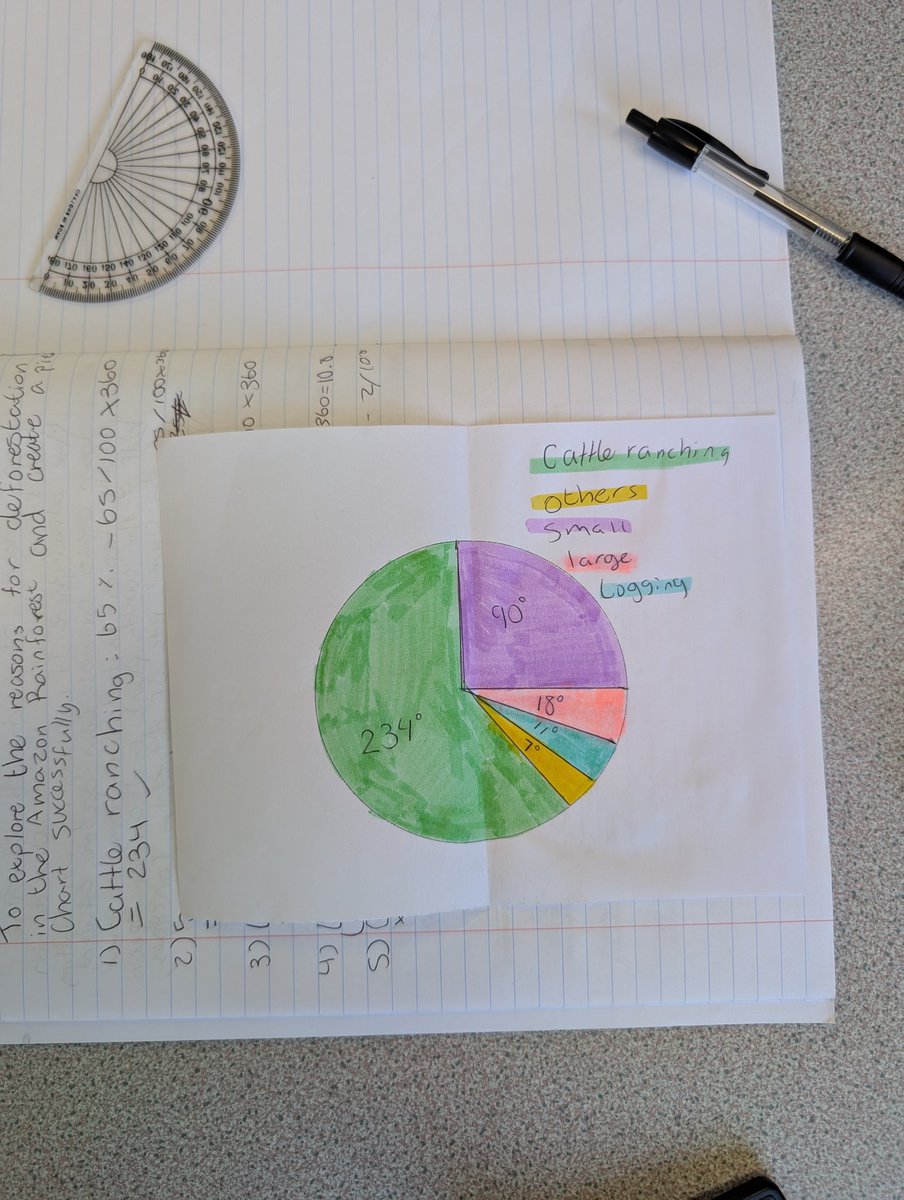 To explore the reasons for deforestation
in the Amazon Rainforest and create a pie
Chart successfully.
1) Cattle ranching: 65 %. - 65/100 x360
= 234
2)
5/100 x36
3)
x360
4)
360=10.8
5)
- 2/100
x
Cattle ranching
others
Small
large
Logging
90°
18°
11°
7°
234°